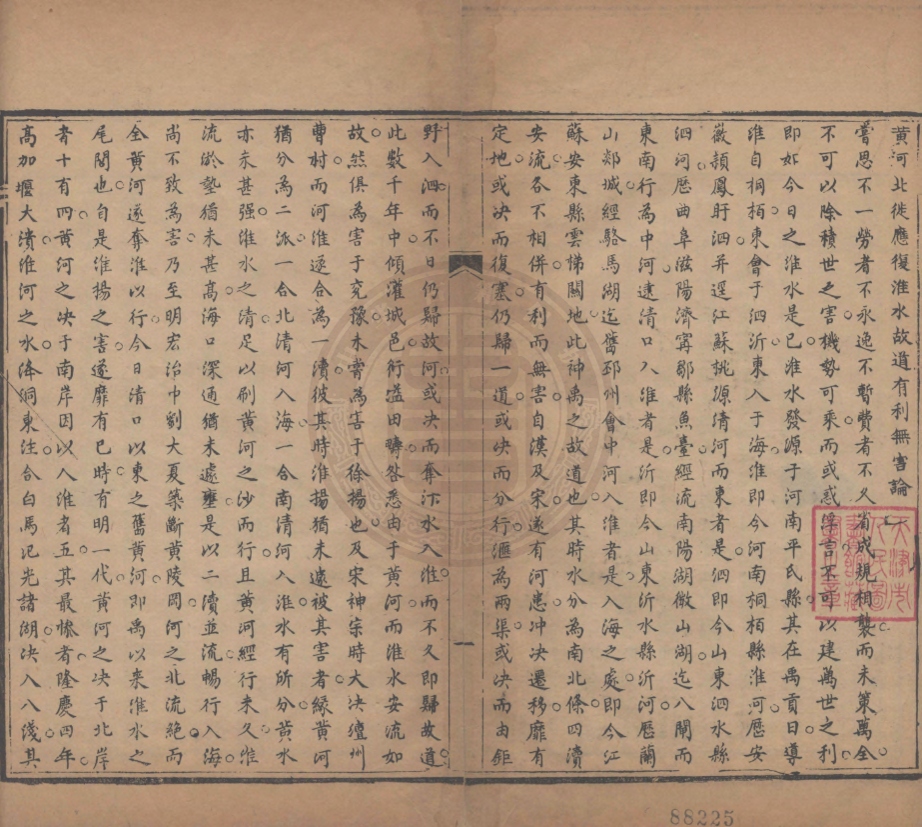 黃河北徙應復淮水故道有利無害論
嘗思不一勞者不永逸不暫費者不久省成規相襲而未策萬全
不可以除積世之害機勢可乘而或惑浮言不可以建萬世之利
即如今日之淮水是已淮水發源于河南平氏縣其在禹貢曰導
淮自桐栢東會于泗沂東入于海淮即今河南桐栢縣淮河歷安
徽潁鳳盱泗并逕江蘇桃源清河而東者是泗即今山東泗水縣
泗河歷曲阜滋陽濟甯鄒縣魚臺經流南陽湖微山湖迄八閘而
東南行為中河達清口入淮者是沂即今山東沂水縣沂河歷蘭
山郯城經駱馬湖迄舊邳州會中河入淮者是入海之處即今江
蘇安東縣雲梯關地此神禹之故道也其時水分為南北條四瀆
安流各不相併有利而無害自漢及宋遂有河患冲决遷移靡有
定地或决而復塞仍歸一道或决而分行滙為兩渠或决而由鉅
野入泗而不日仍歸故河或决而奪汴水入淮而不久即歸故道
此數千年中傾灌城邑衍溢田疇咎悉由于黃河而淮水安流如
故然俱為害于兗豫未嘗為害于徐揚也及宋神宗時大决澶州
曹村而河淮逐合為一瀆彼其時淮揚猶未遽被其害者緣黃河
猶分為二派一合北清河入海一合南清河入淮水有所分黃水
亦未甚强淮水之清足以刷黃河之沙而行且黃河經行未久淮
流淤墊猶未甚高海口深通猶未遽壅是以二瀆並流暢行入海
尚不致為害乃至明宏治中劉大夏築斷黃陵岡河之北流絕而
全黃河遂奪淮以行今日清口以東之舊黃河即禹以來淮水之
尾閭也自是淮揚之害遂靡有已時有明一代黃河之决于北岸
者十有四黃河之决于南岸因以入淮者五其最慘者隆慶四年
高加堰大潰淮河之水洚洞東注合白馬氾光諸湖决入八淺其
一
天津市
人民圖
書館藏
書之章
88225